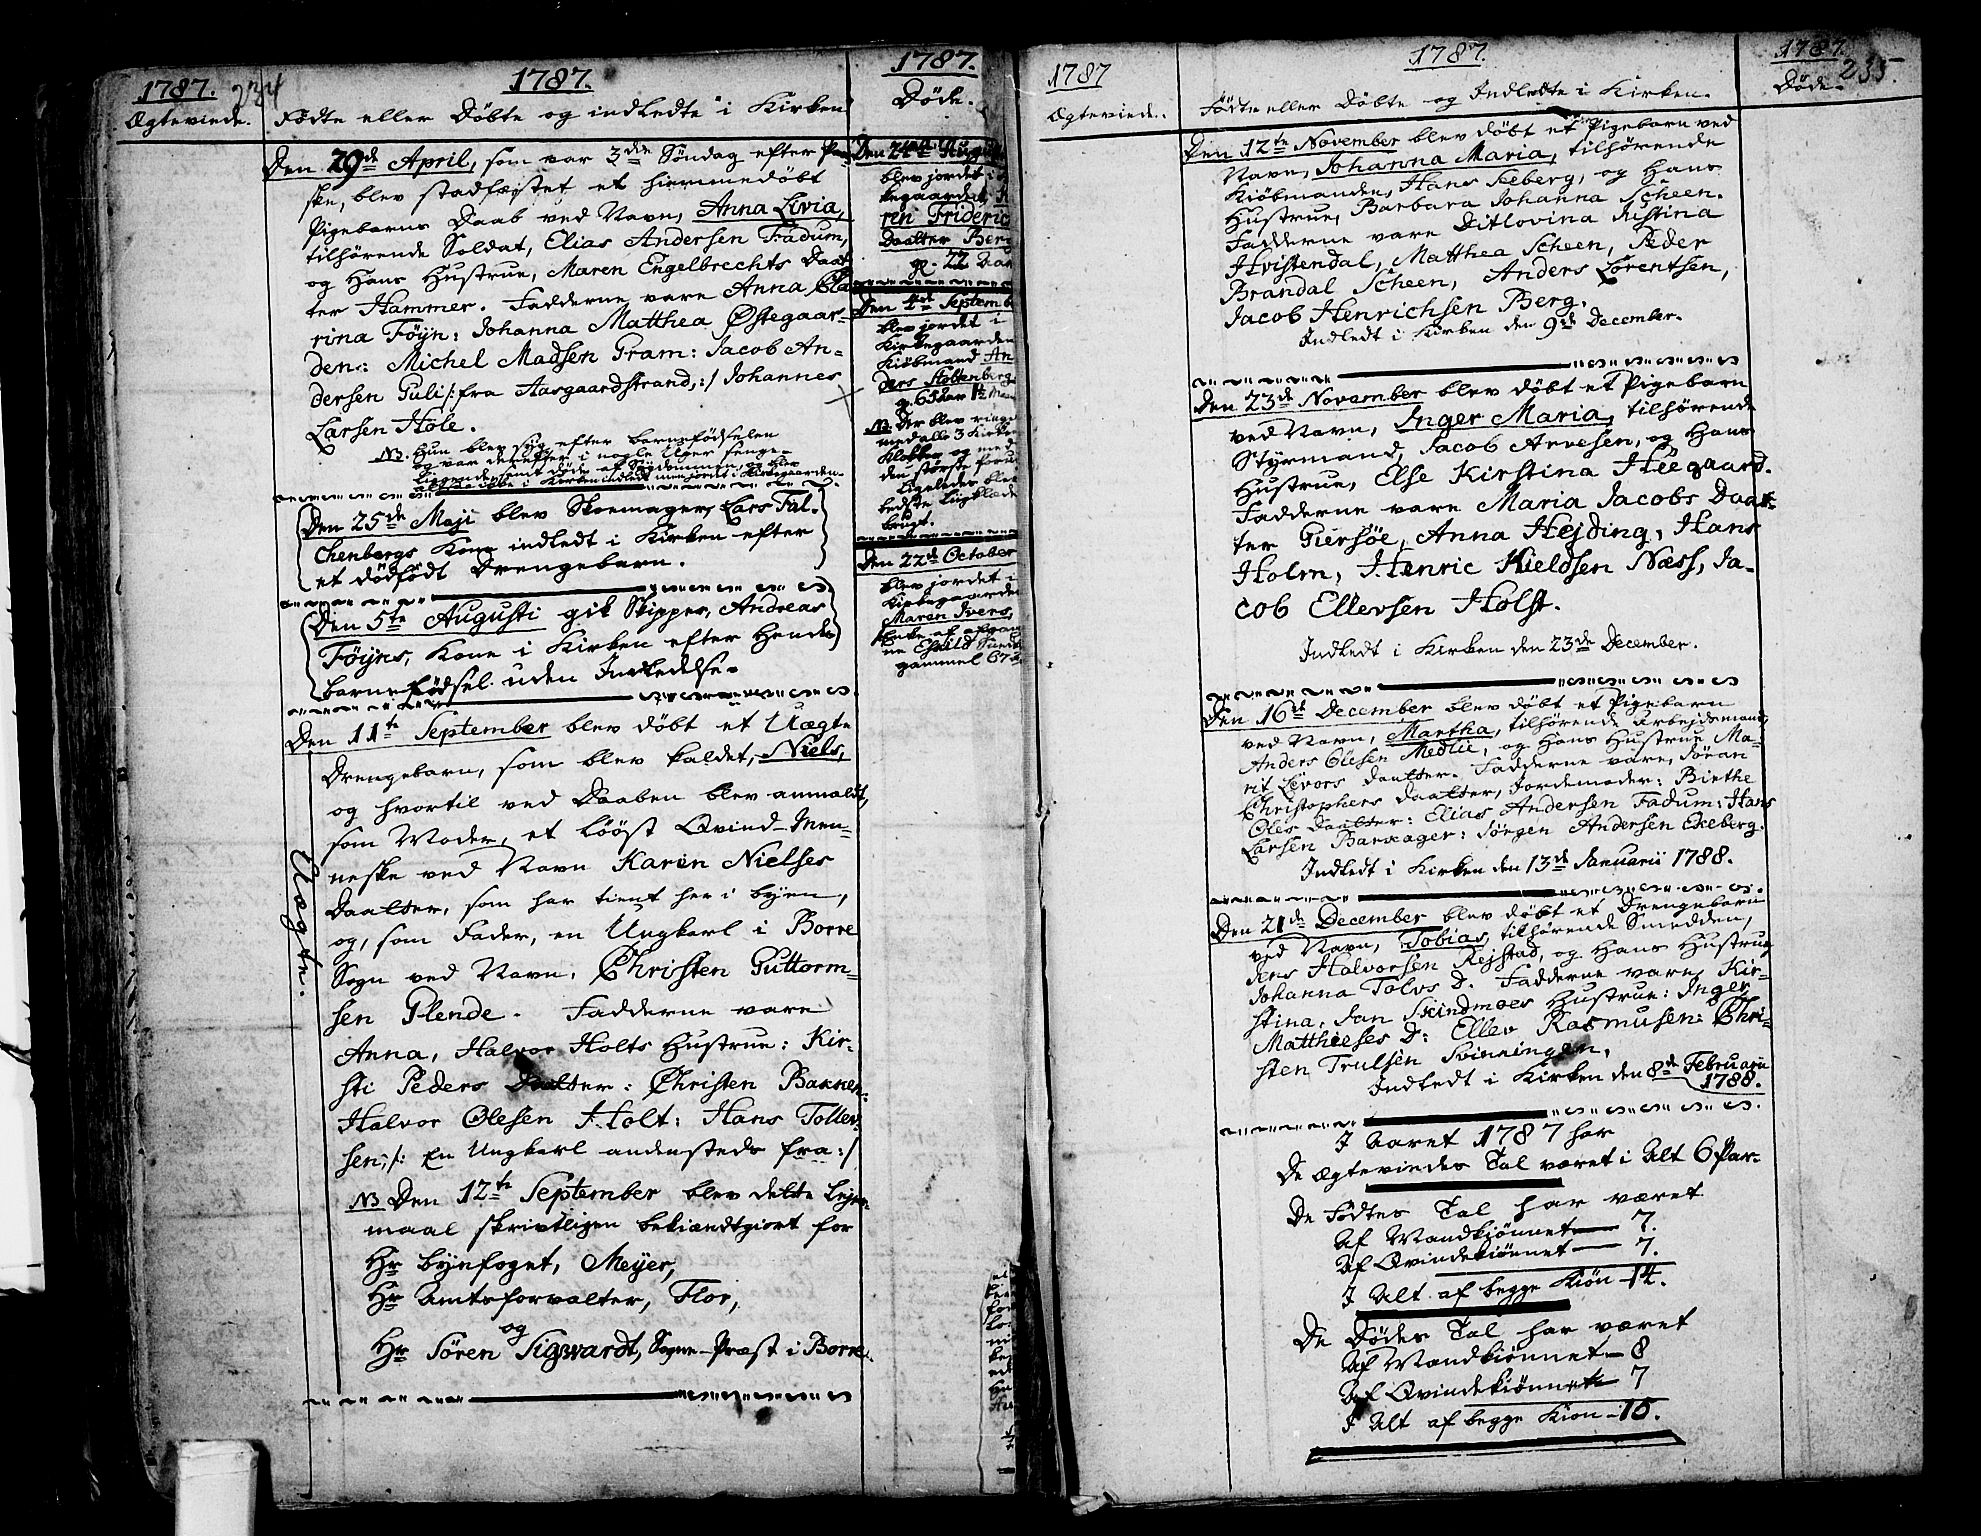 1787. 234
Ægteviede.
1787.
Fødte eller Døbte og indledte i Kirken
Den 29de April, som var 3die Søndag efter Paa-
ske, blev stadfæstet et hiemmedøbt
Pigebarns Daab ved Navn, Anna Livia,
tilhørende Soldat, Elias Andersen Fadum,
og Hans Hustrue, Maren Engelbrechts Daat-
ter Hammer. Fadderne vare Anna Cla
rina Föyn: Johanna Matthea Østegaar-
den: Michel Madsen Gram: Jacob An-
dersen Guli /: fra Aasgaardstrand, :/ Johannes
Larsen Hole.
NB. Hun blev syg efter barnefødselen
og var derefter i nogle Uger senge-
liggende, samt døde af Sygdommen, og blev
altsaa ikke i Kirken indledt men jordet i Kirkegaarden.
Den 25de Maji blev Skoemager, Lars Fal-
chenbergs Kone indledt i Kirken efter
et dødfödt Drengebarn.
Den 5te Augusti gik Skipper, Andreas
Föyns, Kone i Kirken efter Hendes
barnefødsel uden Indledelse.
Den 11te September blev döbt et Uægte
Drengebarn, som blev kaldet, Niels,
og hvortil ved Daaben blev anmældt,
som Moder, et lööst Qvind-Men-
neske ved Navn Karen Nielses
Daatter, som har tient her i byen,
og, som Fader, en Ungkarl i Borre
Sogn ved Navn, Christen Guttorm-
sen Glende. Fadderne vare
Anna, Halvor Holts Hustrue: Kir-
sti Peders Daatter: Christen Bakken:
Halvor Olesen Holt: Hans Tollev-
sen, /: En Ungkarl andensteds fra :/
NB Den 12te September blev dette Leyer-
maal skrivtligen bekiændtgiort for
Hr byefoget, Meyer,
Hr Amtsforvalter, Flor,
og
Hr Sören Sigwardt, Sogne-Præst i Borre.
Uægte.
1787.
Døde.
Den 24de Augusti
blev jordet i
kegaarden,
rin Frideric
Daatter Berg
g. 22 Aar
Den 4de Septemb
blev jordet i
Kirkegaarden
Kiöbmand An
ders Stoltenberg
g. 65 Aar 1½ Maan
NB. Der blev ringet
med alle 3 Kirke
Klokker og med
den störste forud
Ligeledes blev
bedste Liigklæde
brugt.
Den 22de October
blev jordet i
Kirkegaarden
Maren Ivers,
Enke af afgang
ne Eskild Sund
gammel 67
1787
Ægteviede.
1787.
Fødte eller Döbte og Indledte i Kirken.
Den 12te November blev döbt et Pigebarn ved
Navn, Johanna Maria, tilhörende
Kiöbmanden, Hans Seeberg, og Hans
Hustrue, Barbara Johanna Scheen.
Fadderne vare Ditlovina Ristina
Hvistendal, Matthea Scheen, Peder
Brandal Scheen, Anders Lorentsen,
Jacob Henrichsen Berg.
Indledt i Kirken den 9de December.
Den 23de November blev döbt et Pigebarn
ved Navn, Inger Maria, tilhörende
Styrmand, Jacob Arvesen, og Hans
Hustrue, Else Kirstina Heegaard.
Fadderne vare Maria Jacobs Daat-
ter Giersöe, Anna Hejding, Hans
Holm, Henric Kieldsen Næss, Ja-
cob Ellevsen Holst.
Indledt i Kirken den 23de December.
Den 16de December blev döbt et Pigebarn
ved Navn, Martha, tilhörende Arbejdsmand,
Anders Olesen Medlie, og Hans Hustrue Ma-
rit Levors Daatter. Fadderne vare, Jöran
Christophers Daatter, Jordemoder: Birthe
Oles Daatter: Elias Andersen Fadum: Hans
Larsen Barkager: Jörgen Andersen Ekeberg.
Indledt i Kirken den 13de Januarii 1788.
Den 21de December blev döbt et Drengebarn
ved Navn, Tobias, tilhörende Smedden,
Jens Halvorsen Rejstad, og Hans Hustrue
Johanna Tolvs D. Fadderne vare, Kir-
stina, Jan Skindmoes Hustrue: Inger
Matthieses D: Ellev Rasmusen: Chri-
sten Trulsen Svinningen,
Indledt i Kirken den 8de Februarii
1788.
I Aaret 1787 har
De Ægteviedes Tal været i Alt 6 Par-
De Födtes Tal har været
Af Mandkiönnet 7.
Af Qvindekiönnet 7.
I Alt af begge Kiön 14.
De Dödes Tal har været
Af Mandkiönnet 8
Af Qvindekiönnet 7
I Alt af begge Kiön 15.
1787. 235.
Døde.